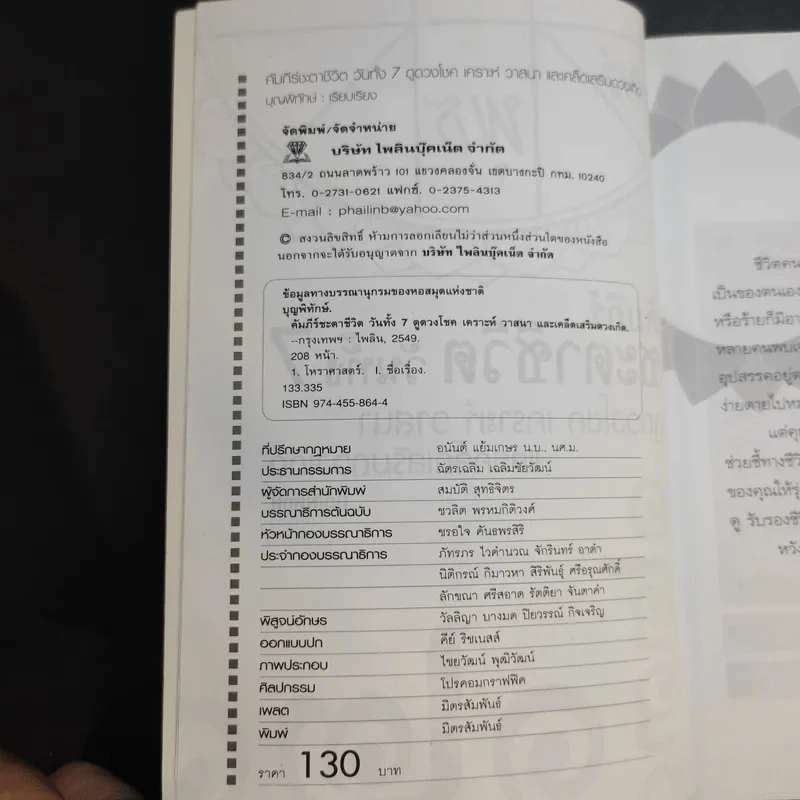 คัมภีร์ชะตาชีวิต วันทั้ง 7 ดูดวงโชค เคราะห์ วาสนา และเคล็ดเสริมดวงเกิด
บุญพิทักษ์ : เรียบเรียง
จัดพิมพ์/จัดจำหน่าย
บริษัท ไพลินบุ๊คเน็ต จำกัด
834/2 ถนนลาดพร้าว 101 แขวงคลองจั่น เขตบางกะปิ กทม. 10240
โทร. 0-2731-0621 แฟกซ์. 0-2375-4313
E-mail : phailinb@yahoo.com
© สงวนลิขสิทธิ์ ห้ามการลอกเลียนไม่ว่าส่วนหนึ่งส่วนใดของหนังสือ
นอกจากจะได้รับอนุญาตจาก บริษัท ไพลินบุ๊คเน็ต จำกัด
ข้อมูลทางบรรณานุกรมของหอสมุดแห่งชาติ
บุญพิทักษ์.
คัมภีร์ชะตาชีวิต วันทั้ง 7 ดูดวงโชค เคราะห์ วาสนา และเคล็ดเสริมดวงเกิด.
--กรุงเทพฯ : ไพลิน, 2549.
208 หน้า.
1. โหราศาสตร์. I. ชื่อเรื่อง.
133.335
ISBN 974-455-864-4
ที่ปรึกษากฎหมาย อนันต์ แย้มเกษร น.บ., นศ.ม.
ประธานกรรมการ ฉัตรเฉลิม เฉลิมชัยวัฒน์
ผู้จัดการสำนักพิมพ์ สมบัติ สุทธิจิตร
บรรณาธิการต้นฉบับ ชวลิต พรหมกิติวงศ์
หัวหน้ากองบรรณาธิการ ชรอใจ คันธพรสิริ
ประจำกองบรรณาธิการ ภัทรภร ไวคำนวณ จักรินทร์ อาดำ
นิติกรณ์ กิมาวหา สิริพันธุ์ ศรีอรุณศักดิ์
ลักขณา ศรีสอาด รัตติยา จันตาคำ
พิสูจน์อักษร วัลลิญา บางมด ปิยวรรณ์ กิจเจริญ
ออกแบบปก คีย์ ริชเนสส์
ภาพประกอบ ไชยวัฒน์ พุฒิวัฒน์
ศิลปกรรม โปรคอมกราฟฟิค
เพลต มิตรสัมพันธ์
พิมพ์ มิตรสัมพันธ์
ราคา 130 บาท
ชีวิตคน
เป็นของตนเอง
หรือร้ายก็มีอา
หลายคนพบเจ
อุปสรรคอยู่ต
ง่ายดายไปหม
แต่คุ
ช่วยชี้ทางชีวิ
ของคุณให้รุ่
ดู รับรองชี
หวัง